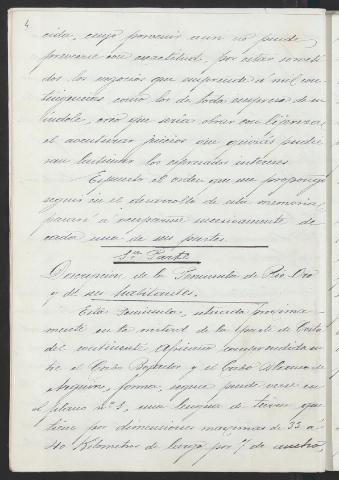 4
cida, cuyo porvenir aun no puede
preveerse con exactitud, por estar someti
dos los negocios que emprende á mil con
tingencias como los de toda empresa de su
índole, creo que sería obrar con ligereza
el aventurar juicios que quizás pudie
ran lastimar los expresados intereses.
Expuesto el orden que me propongo
seguir en el desarrollo de esta memoria,
pasaré á ocuparme sucesivamente de
cada una de sus partes.
1ª Parte
Descripción de la Península de Rio-Oro
y de sus habitantes.
Esta Península, situada próxima
mente en la mitad de la parte de Costa
del continente Africano comprendida en
tre el Cabo Bojador y el Cabo Blanco de
forma, segun puede verse en
el plano nº 1, una lengua de tierra que
tiene por dimensiones maximas de 35 á
40 Kilometros de largo por 7 de ancho,